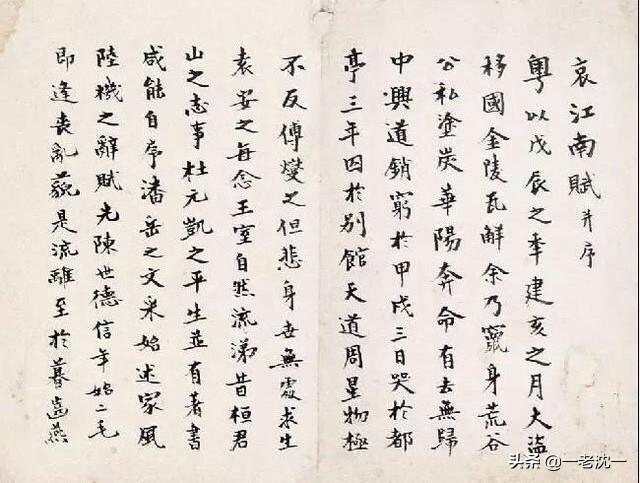 哀江南賦并序
粵以戊辰之年建亥之月大盜
移國金陵瓦解余乃竄身荒谷
公私塗炭華陽奔命有去無歸
中興道銷窮於甲戌三日哭於都
亭三年囚於別館天道周星物極
不反傅燮之但悲身世無處求生
袁安之每念王室自然流涕昔桓君
山之志事杜元凱之平生並有著書
咸能自序潘岳之文采始述家風
陸機之辭賦先陳世德信年始二毛
即逢喪亂藐是流離至於暮齒燕
头条 @一老沈一